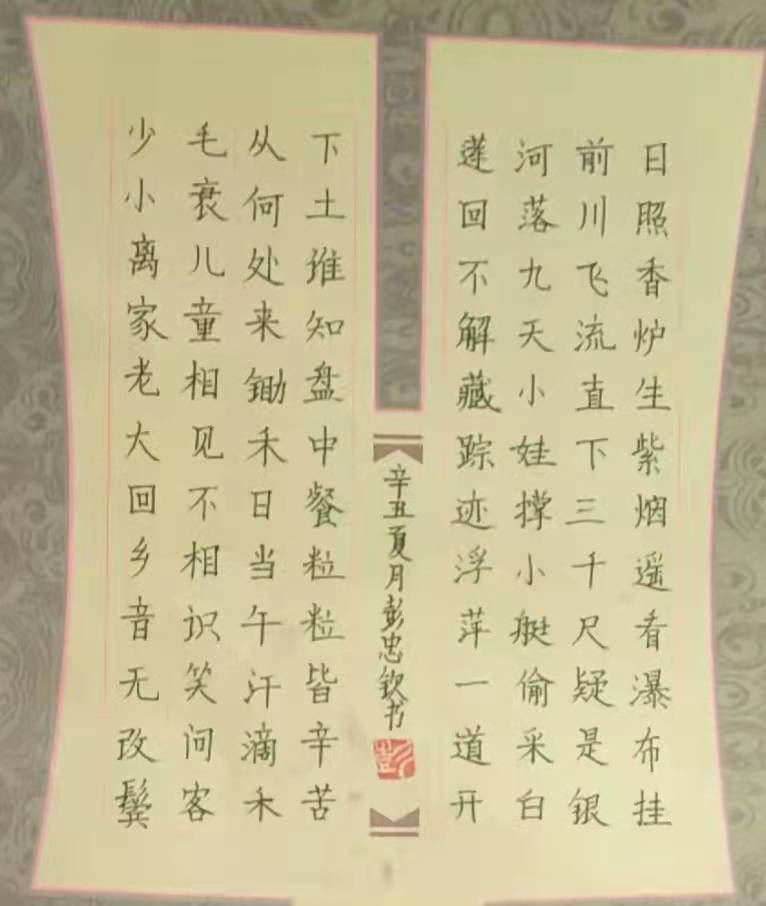 日照香炉生紫烟遥看瀑布挂
前川飞流直下三千尺疑是银
河落九天小娃撑小艇偷采白
莲回不解藏踪迹浮萍一道开
少小离家老大回乡音无改鬓
毛衰儿童相见不相识笑问客
从何处来锄禾日当午汗滴禾
下土谁知盘中餐粒粒皆辛苦
辛丑夏月彭忠钦书
彭